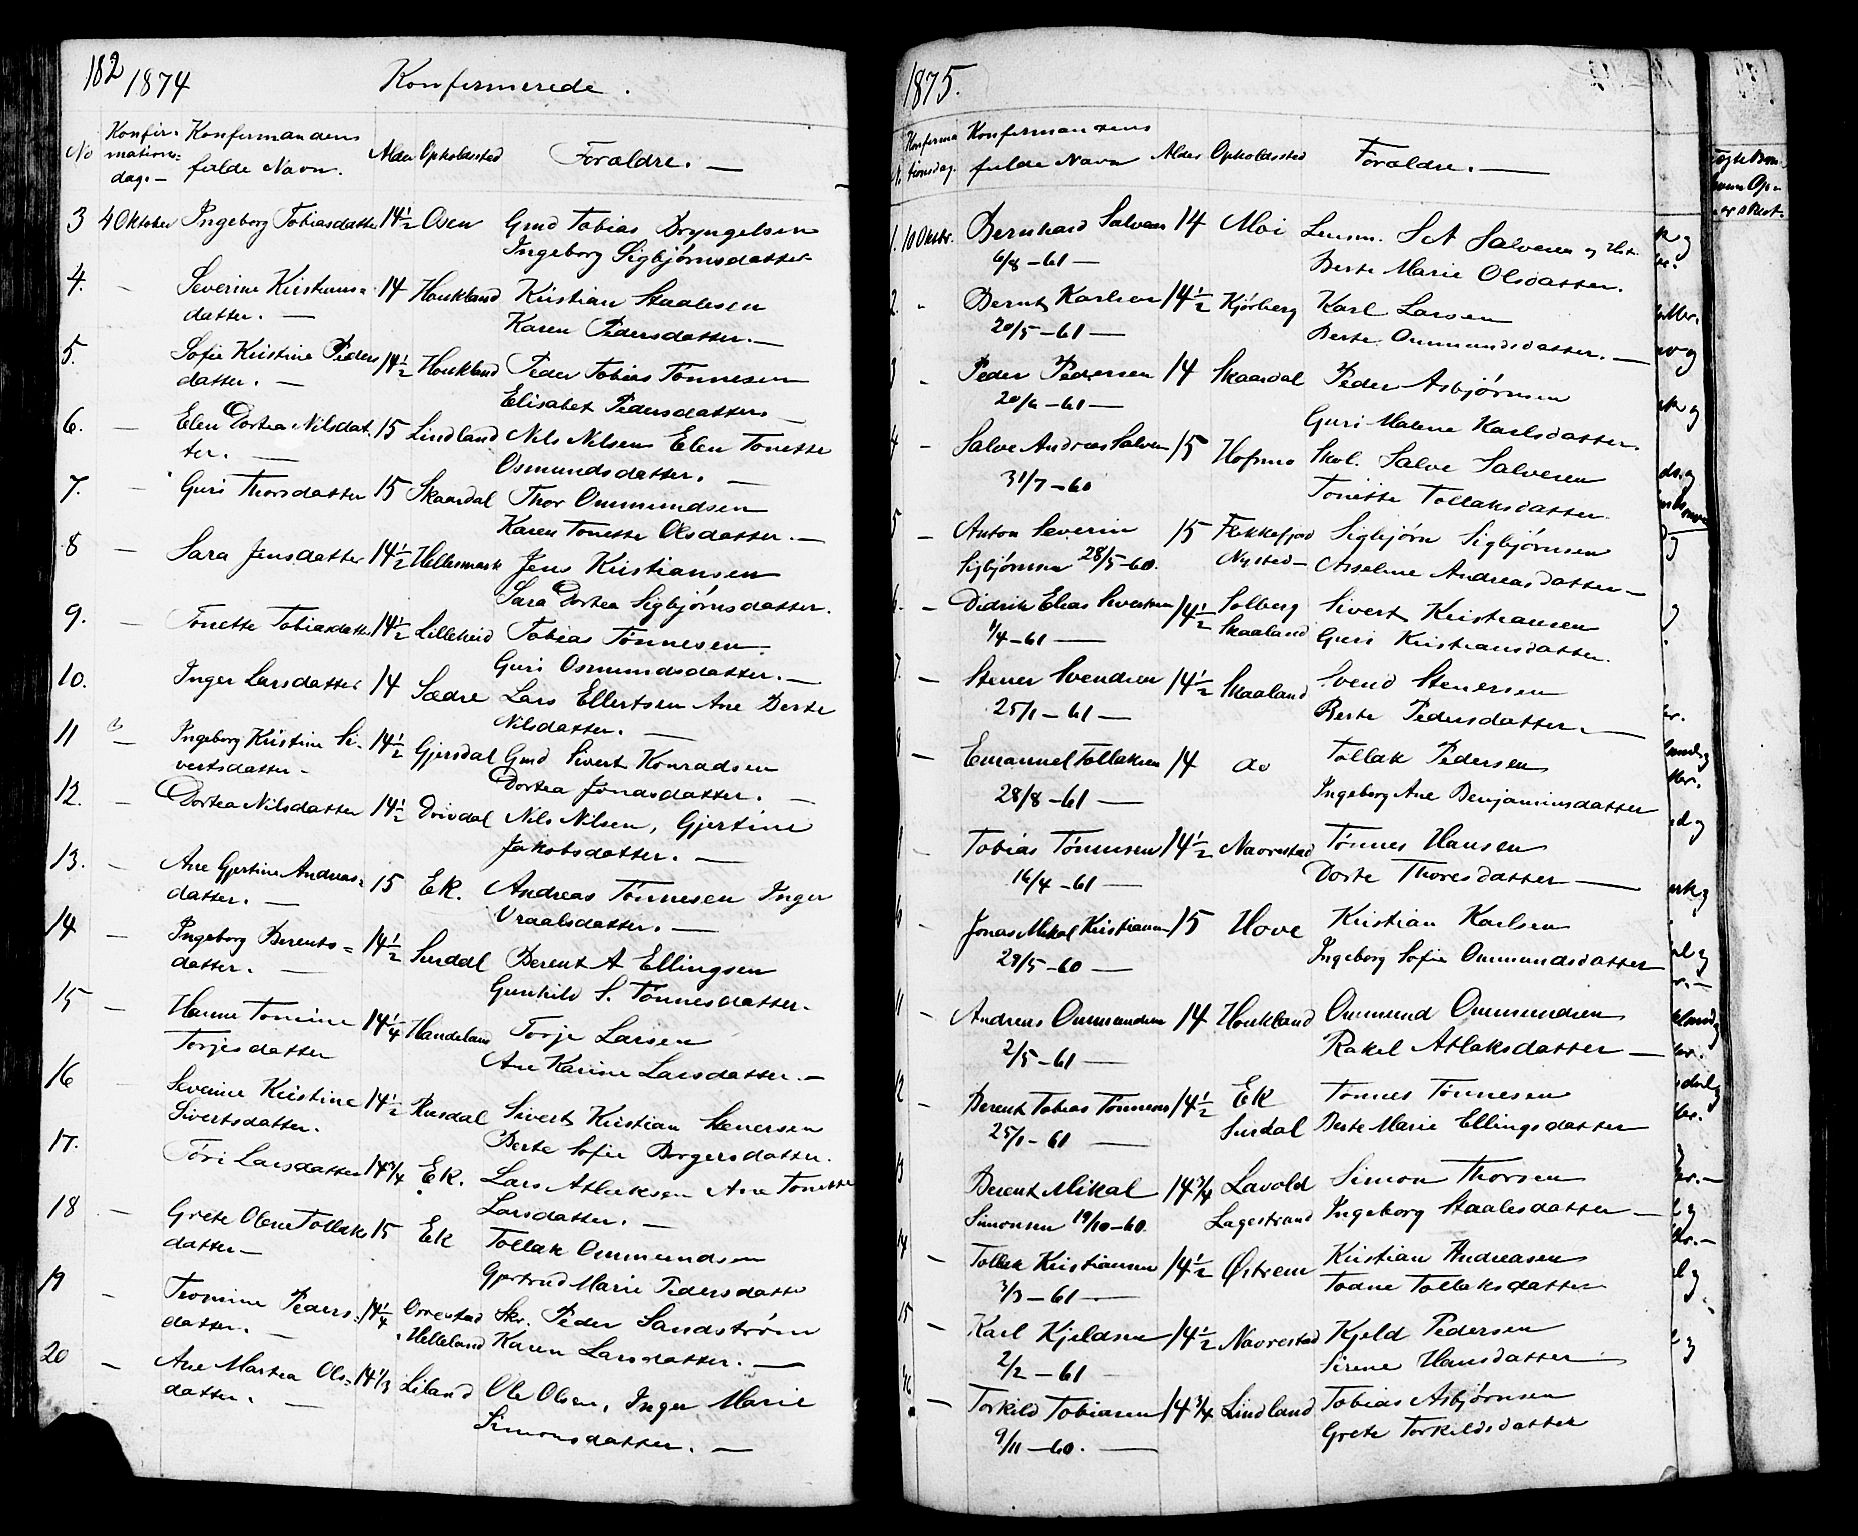 182 1874 Konfirmerede.
No Konfir- Konfirmandens
mations= fulde Navn. Alder Opholdssted Forældre. —
dag. —
3 4 Oktober Ingeborg Tobiasdatter 14½ Osen Gmd Tobias Bryngelsen
Ingeborg Sigbjørnsdatter
4. – Severine Kristians= 14 Houkland Kristian Staalesen
datter. — Karen Pedersdatter. —
5. Sofie Kristine Peders 14½ Houkland Peder Tobias Tønnesen
datter. — Elisabet Pedersdatter
6. — Elen Dortea Nilsdat. 15 Lindland Nils Nilsen Elen Tonette
ter. — Osmundsdatter. —
7. — Guri Thorsdatter 15 Skaardal Thor Ommundsen
Karen Tonette Olsdatter. —
8 — Sara Jensdatter 14½ Hellesmark Jens Kristiansen
Sara Dortea Sigbjørnsdatter.
9. – Tonette Tobiasdatt. 14½ Lilleheid Tobias Tønnesen.
Guri Osmundsdatter. —
10. Inger Larsdatter 14 Sædre Lars Ellertsen Ane Berte
Nilsdatter. —
11 — Ingeborg Kristine Si- 14½ Gjersdal Gmd Sivert Konradsen
vertsdatter – Dortea Jonasdatter. —
12. — Dortea Nilsdatter 14½ Drivdal Nils Nilsen, Gjertine
Jakobsdatter. —
13. – Ane Gjertine Andreas= 15 Ek. Andreas Tønnesen Inger
datter. — Vraalsdatter. —
14 — Ingeborg Berents= 14½ Surdal Berent A Ellingsen
datter. — Gunhild S. Tønnesdatter.
15 — Hanne Tomine 14¼ Handeland Torje Larsen
Torjesdatter Ane Karine Larsdatter. —
16 Severine Kristine 14½ Rusdal Sivert Kristian Stenersen
Sivertsdatter. Berte Sofie Børgersdatter.
17. Tøri Larsdatter 14¾ Ek. Lars Atlaksen Ane Tonette
Larsdatter. —
18 — Grete Olene Tollaks 15 Ek Tollak Ommundsen
datter — Gjertrud Marie Pedersdatter
19 – Tromine Peders. 14¼ Orrestad Skr. Peder Sandstrøm
datter. — Helleland Karen Larsdatter. —
20 — Ane Martea Ols= 14⅓ Liland Ole Olsen, Inger Marie
datter. — Simonsdatter. —
1875.
N. Konfirma Konfirmandens
tionsdag. fulde Navn Alder Opholdssted Forældre. —
1. 10 Oktbr. Bernhard Salvesen 14 Moi Lensm. S A Salvesen og Hst.
6/8 –61 — Berte Marie Olsdatter.
2. „ Bernt Karlsen 14½ Kjørberg Karl Larsen
20/5 –61 — Berte Ommundsdatter. —
3 – Peder Pedersen 14 Skaardal Peder Asbjørnsen
20/6 –61 — Guri Malene Karlsdatter.
4 – Salve Andreas Salvesen 15 Hofsmo Skol. Salve Salvesen
31/7 –60 Tonette Tollaksdatter.
5 – Anton Severin 15 Flekkefjord Sigbjørn Sigbjørnsen
Sigbjørnsen 28/5–60. Nysted – Asseline Andreasdatter —
6. – Didrik Elias Sivertsen 14½ Solberg Sivert Kristiansen
1/4 –61 — Skaaland Guri Kristiansdatter.
7. – Stener Svendsen 14½ Skaaland Svend Stenersen
25/1 –61 — Berte Pedersdatter. —
8 – Emanuel Tollaksen 14 do Tollak Pedersen
28/8 –61 — Ingeborg Ane Benjaminsdatter
– Tobias Tønnesen 14½ Navrestad Tønnes Hansen
16/4 –61 — Dorte Thoresdatter —
– Jonas Mikal Kristiansen 15 Hove Kristian Karlsen
29/5 –60 — Ingeborg Sofie Ommundsdatter
11 – Andreas Ommundsen 14 Houkland Ommund Ommundsen
2/5 –61 — Rakel Atlaksdatter —
12 – Berent Tobias Tønnesen 14½ Ek Tønnes Tønnesen
25/1 –61 — Surdal Berte Marie Ellingsdatter
13 Berent Mikal 14¾ Lavold Simon Thorsen
Simonsen 19/10–60. Lagestrand Ingeborg Staalesdatter —
14 – Tollak Kristiansen 14½ Østrem Kristian Andreasen
3/3 –61 — Todne Tollaksdatter
15 – Karl Kjeldsen 14½ Navrestad Kjeld Pedersen
2/2 –61 Sirene Hansdatter —
16 – Torkild Tobiasen 14¾ Lindland Tobias Asbjørnsen
9/11 –60. — Grete Torkildsdatter